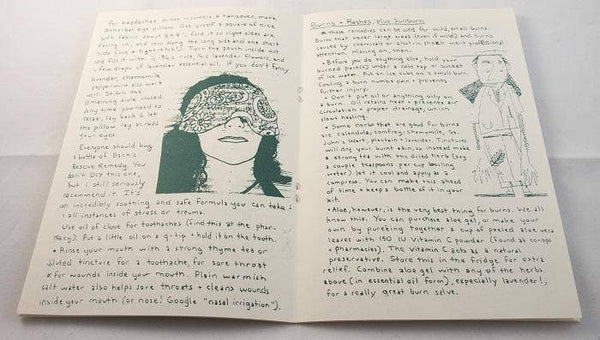 For headaches, stress, insomnia, & hangover, make
an herbal eye pillow. Cut yourself a square of nice,
soft fabric about 9 x 9", fold it so right sides are
facing in, and sew along the long side and one short
side (use a tight stitch). Turn the pouch inside out
and fill it with 3/4 c rice, 1/4 c lavender flowers, and
a few drops of lavender essential oil. If you don't fancy
lavender, chamomile,
peppermint also work
well. Stitch the
remaining side closed.
Any time you need to
relax, lay back & let
the pillow lay across
your eyes.
Everyone should buy
a bottle of Bach's
Rescue Remedy. You
don't DIY this one,
but I still seriously
recommend it. It's
an incredibly soothing and safe formula you can take
in all instances of stress or trauma.
Use oil of clove for toothaches (find this at the phar-
macy). Put a little oil on a q-tip + hold it on the tooth.
• Rinse your mouth with a strong thyme tea or
diluted tincture for a toothache, for sore throat
& for wounds inside your mouth. Plain warmish
salt water also helps sore throats + cleans wounds
inside your mouth (or nose! Google "nasal irrigation").
Burns + Rashes, plus Sunburn
these remedies can be used for mild, small burns.
Burns that cover large areas (even if mild) and burns
caused by chemicals or electric shock merit professional
attention. Moving on, then.
• Before you do anything else, hold your
burned part(s) under a cold tap or bucket
of ice water. Put an ice cube on a small burn.
Cooling a burn numbs pain + prevents
further injury.
• Don't put oil or anything oily on
a burn. Oil retains heat + prevents air
circulation + proper drainage, which
slows healing.
• Some herbs that are good for burns
are calendula, comfrey, chamomile, St.
John's Wort, plantain + lavender. Tinctures
will dry your burnt skin, so instead make
a strong tea with the dried herb (say
a couple teaspoons per cup boiling
water) let it cool and apply as a
compress. You can make this ahead
of time + keep a bottle of it in your
kit.
• Aloe, however, is the very best thing for burns. We all
know this. You can purchase aloe gel, or make your
own by puréeing together a cup of peeled aloe vera
leaves with 150 IU Vitamin C powder (found at co-ops
+ pharmacies). The vitamin C acts as a natural
preservative. Store this in the fridge for extra
relief. Combine aloe gel with any of the herbs
above (in essential oil form), especially lavender!,
for a really great burn salve.